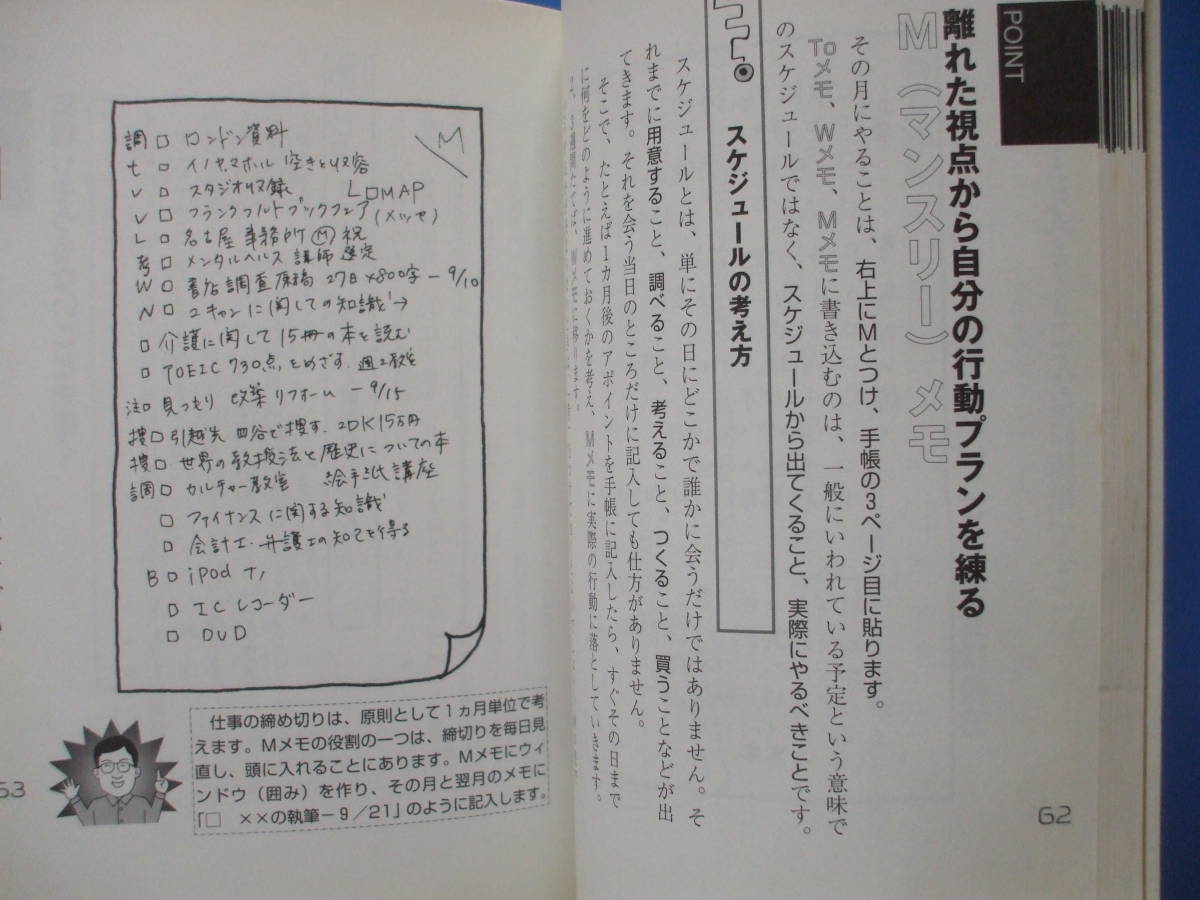 POINT
離れた視点から自分の行動プランを練る
M（マンスリー）メモ
その月にやることは、右上にMとつけ、手帳の3ページ目に貼ります。
Toメモ、Wメモ、Mメモに書き込むのは、一般にいわれている予定という意味で
のスケジュールではなく、スケジュールから出てくること、実際にやるべきことです。
スケジュールの考え方
スケジュールとは、単にその日にどこかで誰かに会うだけではありません。そ
れまでに用意すること、調べること、考えること、つくること、買うことなどが出
てきます。それを会う当日のところだけに記入しても仕方がありません。
そこで、たとえば1カ月後のアポイントを手帳に記入したら、すぐその日まで
に何をどのように進めておくかを考え、Mメモに実際の行動に落としていきます。
3週間たてば、Wメモに移ります。
62
M
調 □ ロンドン資料
t □ イノヤマホール 空きと収容
v □ スタジオ収録 L□MAP
v □ フランクフルトブックフェア(メッセ)
L □ 名古屋事務所 Ⓜ 祝
考 □ メンタルヘルス 講師 選定
W □ 書店調査原稿 27日×800字－9/10
N □ ユキャンに関しての知識→
□ 介護に関して15冊の本を読む
□ TOEIC 730点をめざす.
注□ 見つもり 改築リフォーム －9/15
捜□ 引越先 四谷で捜す. 2DK15万円
捜□ 世界の教授法と歴史についての本
調□ カルチャー教室 絵手紙講座
□ ファイナンスに関する知識
□ 会計士・弁護士の知己を得る
B□ iPod ナノ
□ ICレコーダー
□ DVD
仕事の締め切りは、原則として1ヵ月単位で考
えます。Mメモの役割の一つは、締切りを毎日見
直し、頭に入れることにあります。Mメモにウィ
ンドウ（囲み）を作り、その月と翌月のメモに
「□　××の執筆－9／21」のように記入します。
63